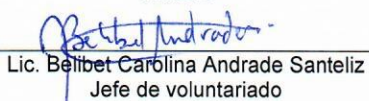 Belibet Andrade
Lic. Belibet Carolina Andrade Santeliz
Jefe de voluntariado